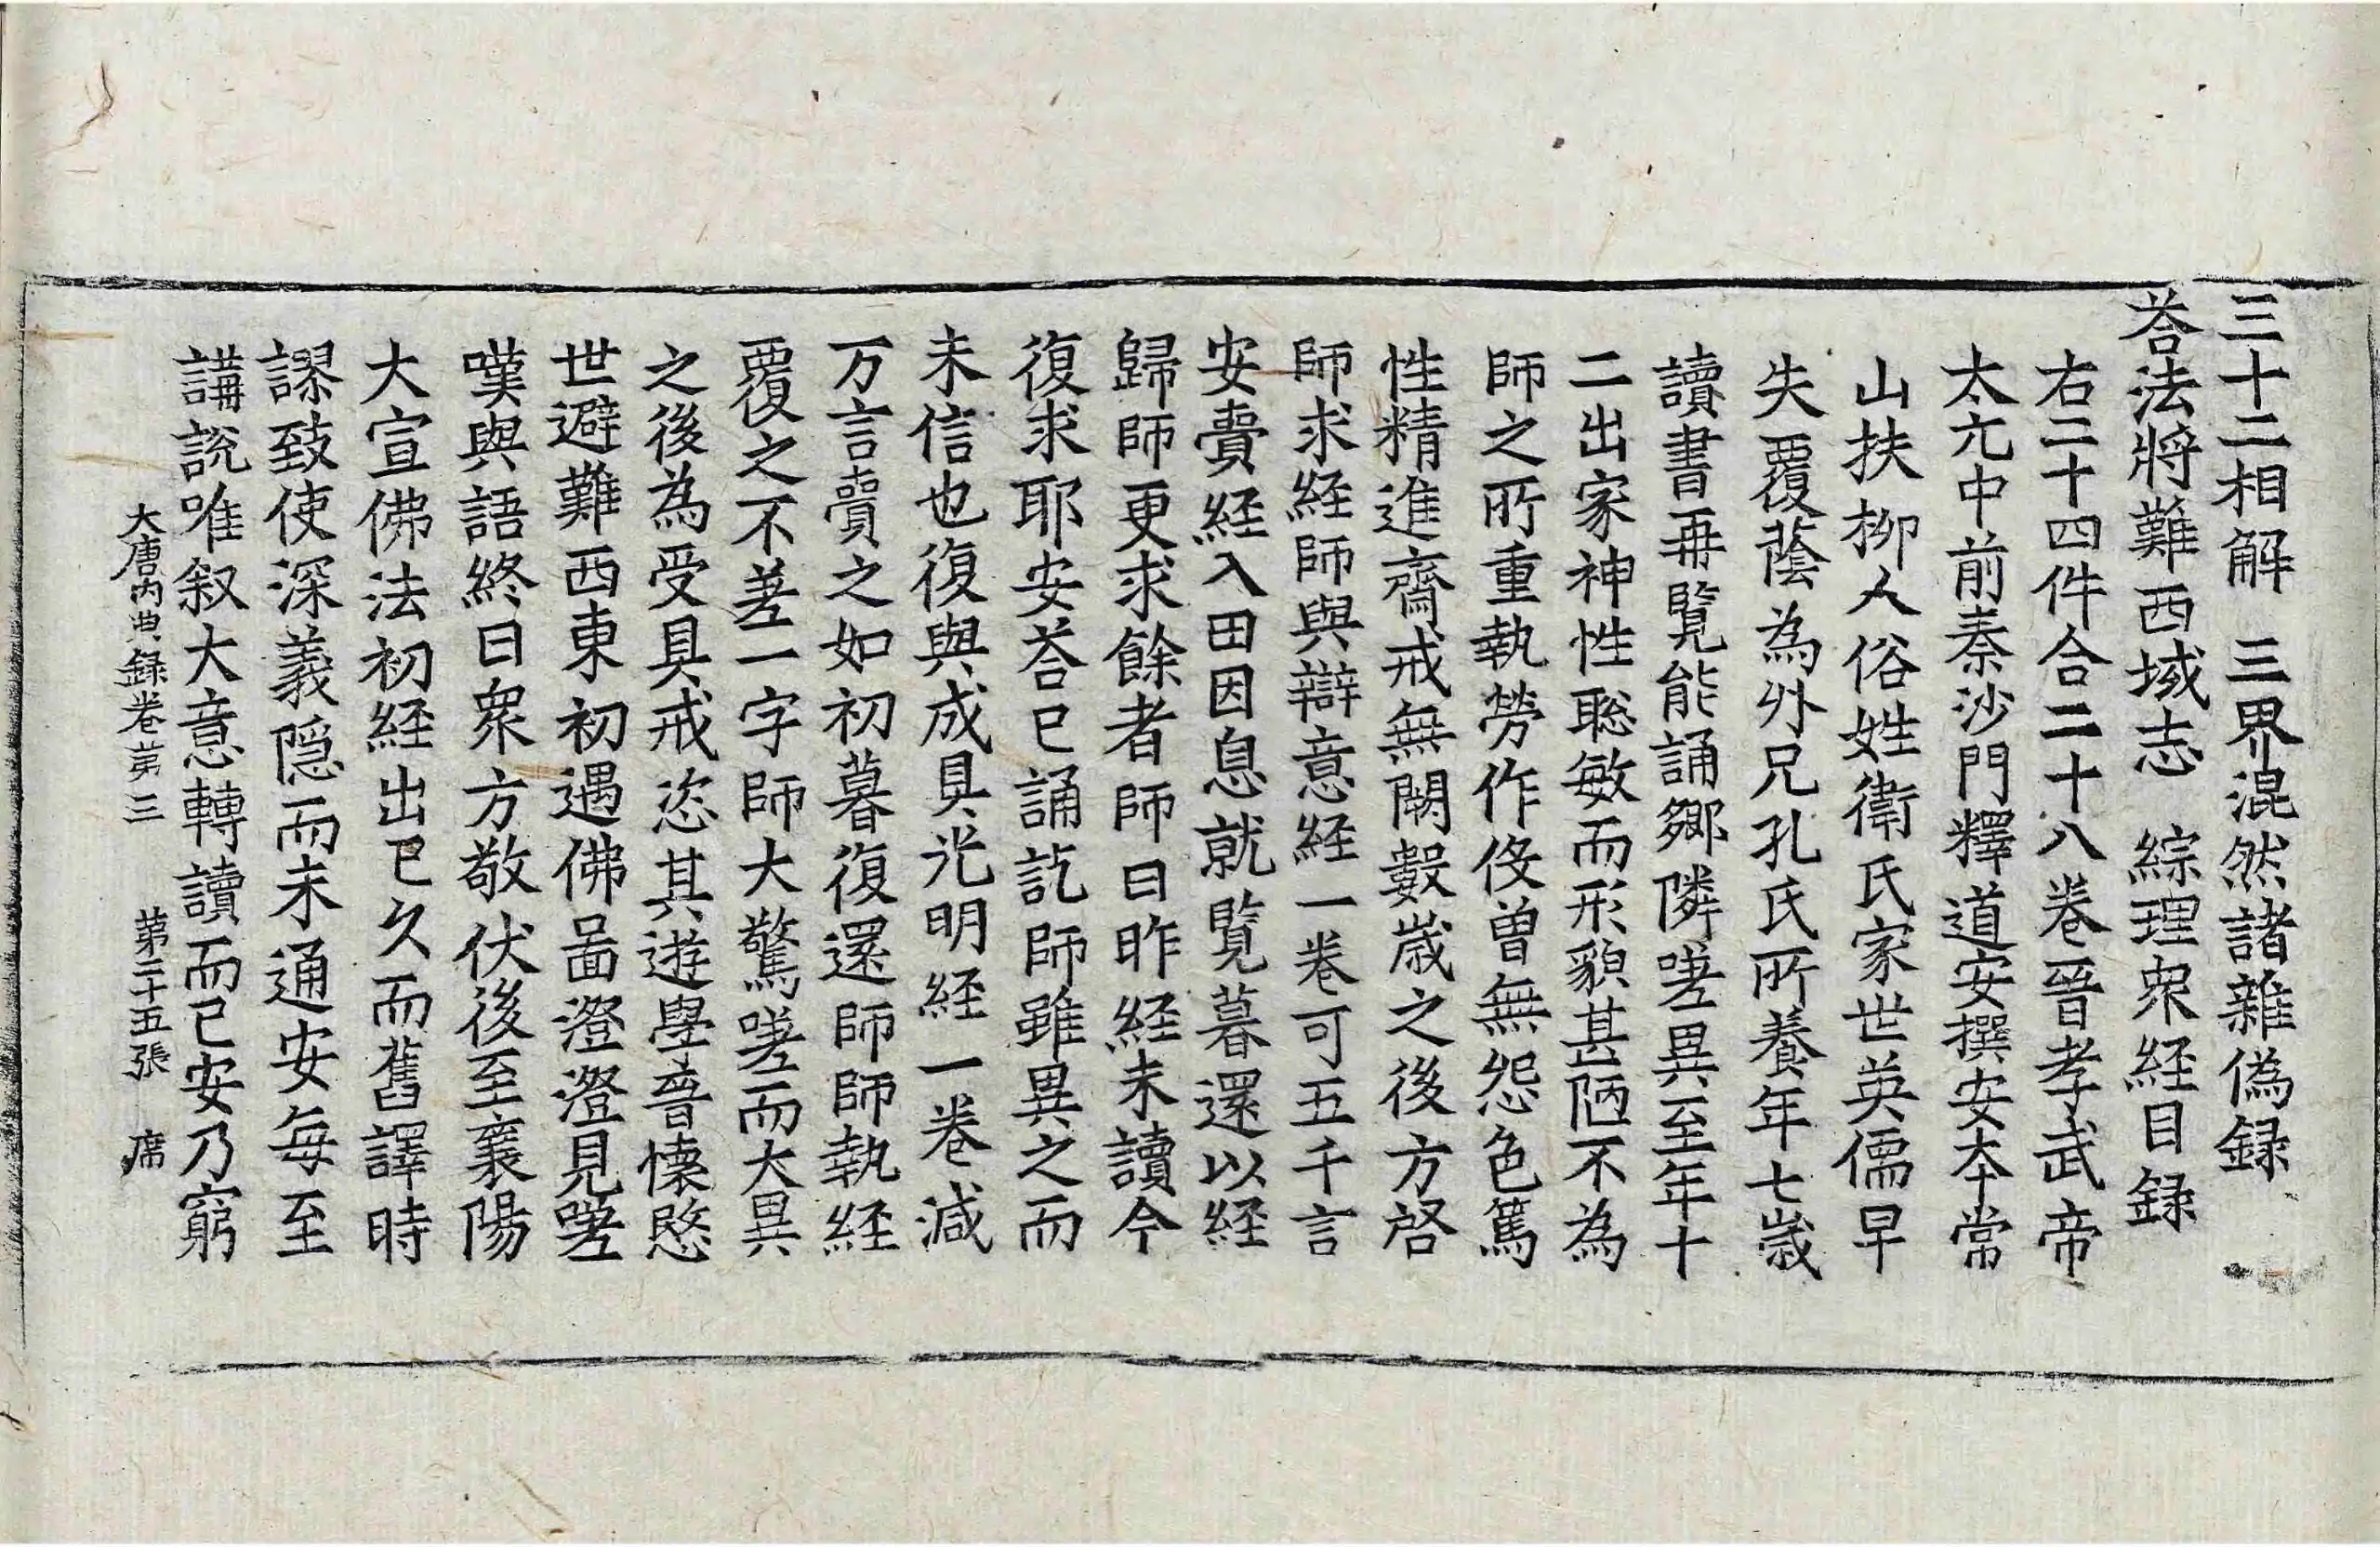 三十二相解　三界混然諸雜偽録
荅法將難西域志　綜理衆経目録
右二十四件合二十八卷晉孝武帝
太元中前秦沙門釋道安撰安夲常
山扶柳人俗姓衛氏家世英儒早
失覆蔭為外兄孔氏所養年七歲
讀書再覽能誦鄉隣嗟異至年十
二出家神性聡敏而形貌甚陋不為
師之所重執勞作伇曾無怨色篤
性精進齋戒無闕數歲之後方啓
師求経師與辯意経一卷可五千言
安賷経入田因息就覽暮還以経
歸師更求餘者師曰昨経未讀今
復求耶安荅已誦訖師雖異之而
未信也復與成具光明経一卷減
万言賷之如初暮復還師師執経
覆之不差一字師大驚嗟而大異
之後為受具戒恣其遊學晉懷愍
世避難西東初遇佛啚澄澄見嗟
嘆與語終日衆方敬伏後至襄陽
大宣佛法初経出已久而舊譯時
謬致使深義隐而未通安每至
講說唯叙大意轉讀而已安乃窮
大唐内典録卷苐三　苐二十五張　席